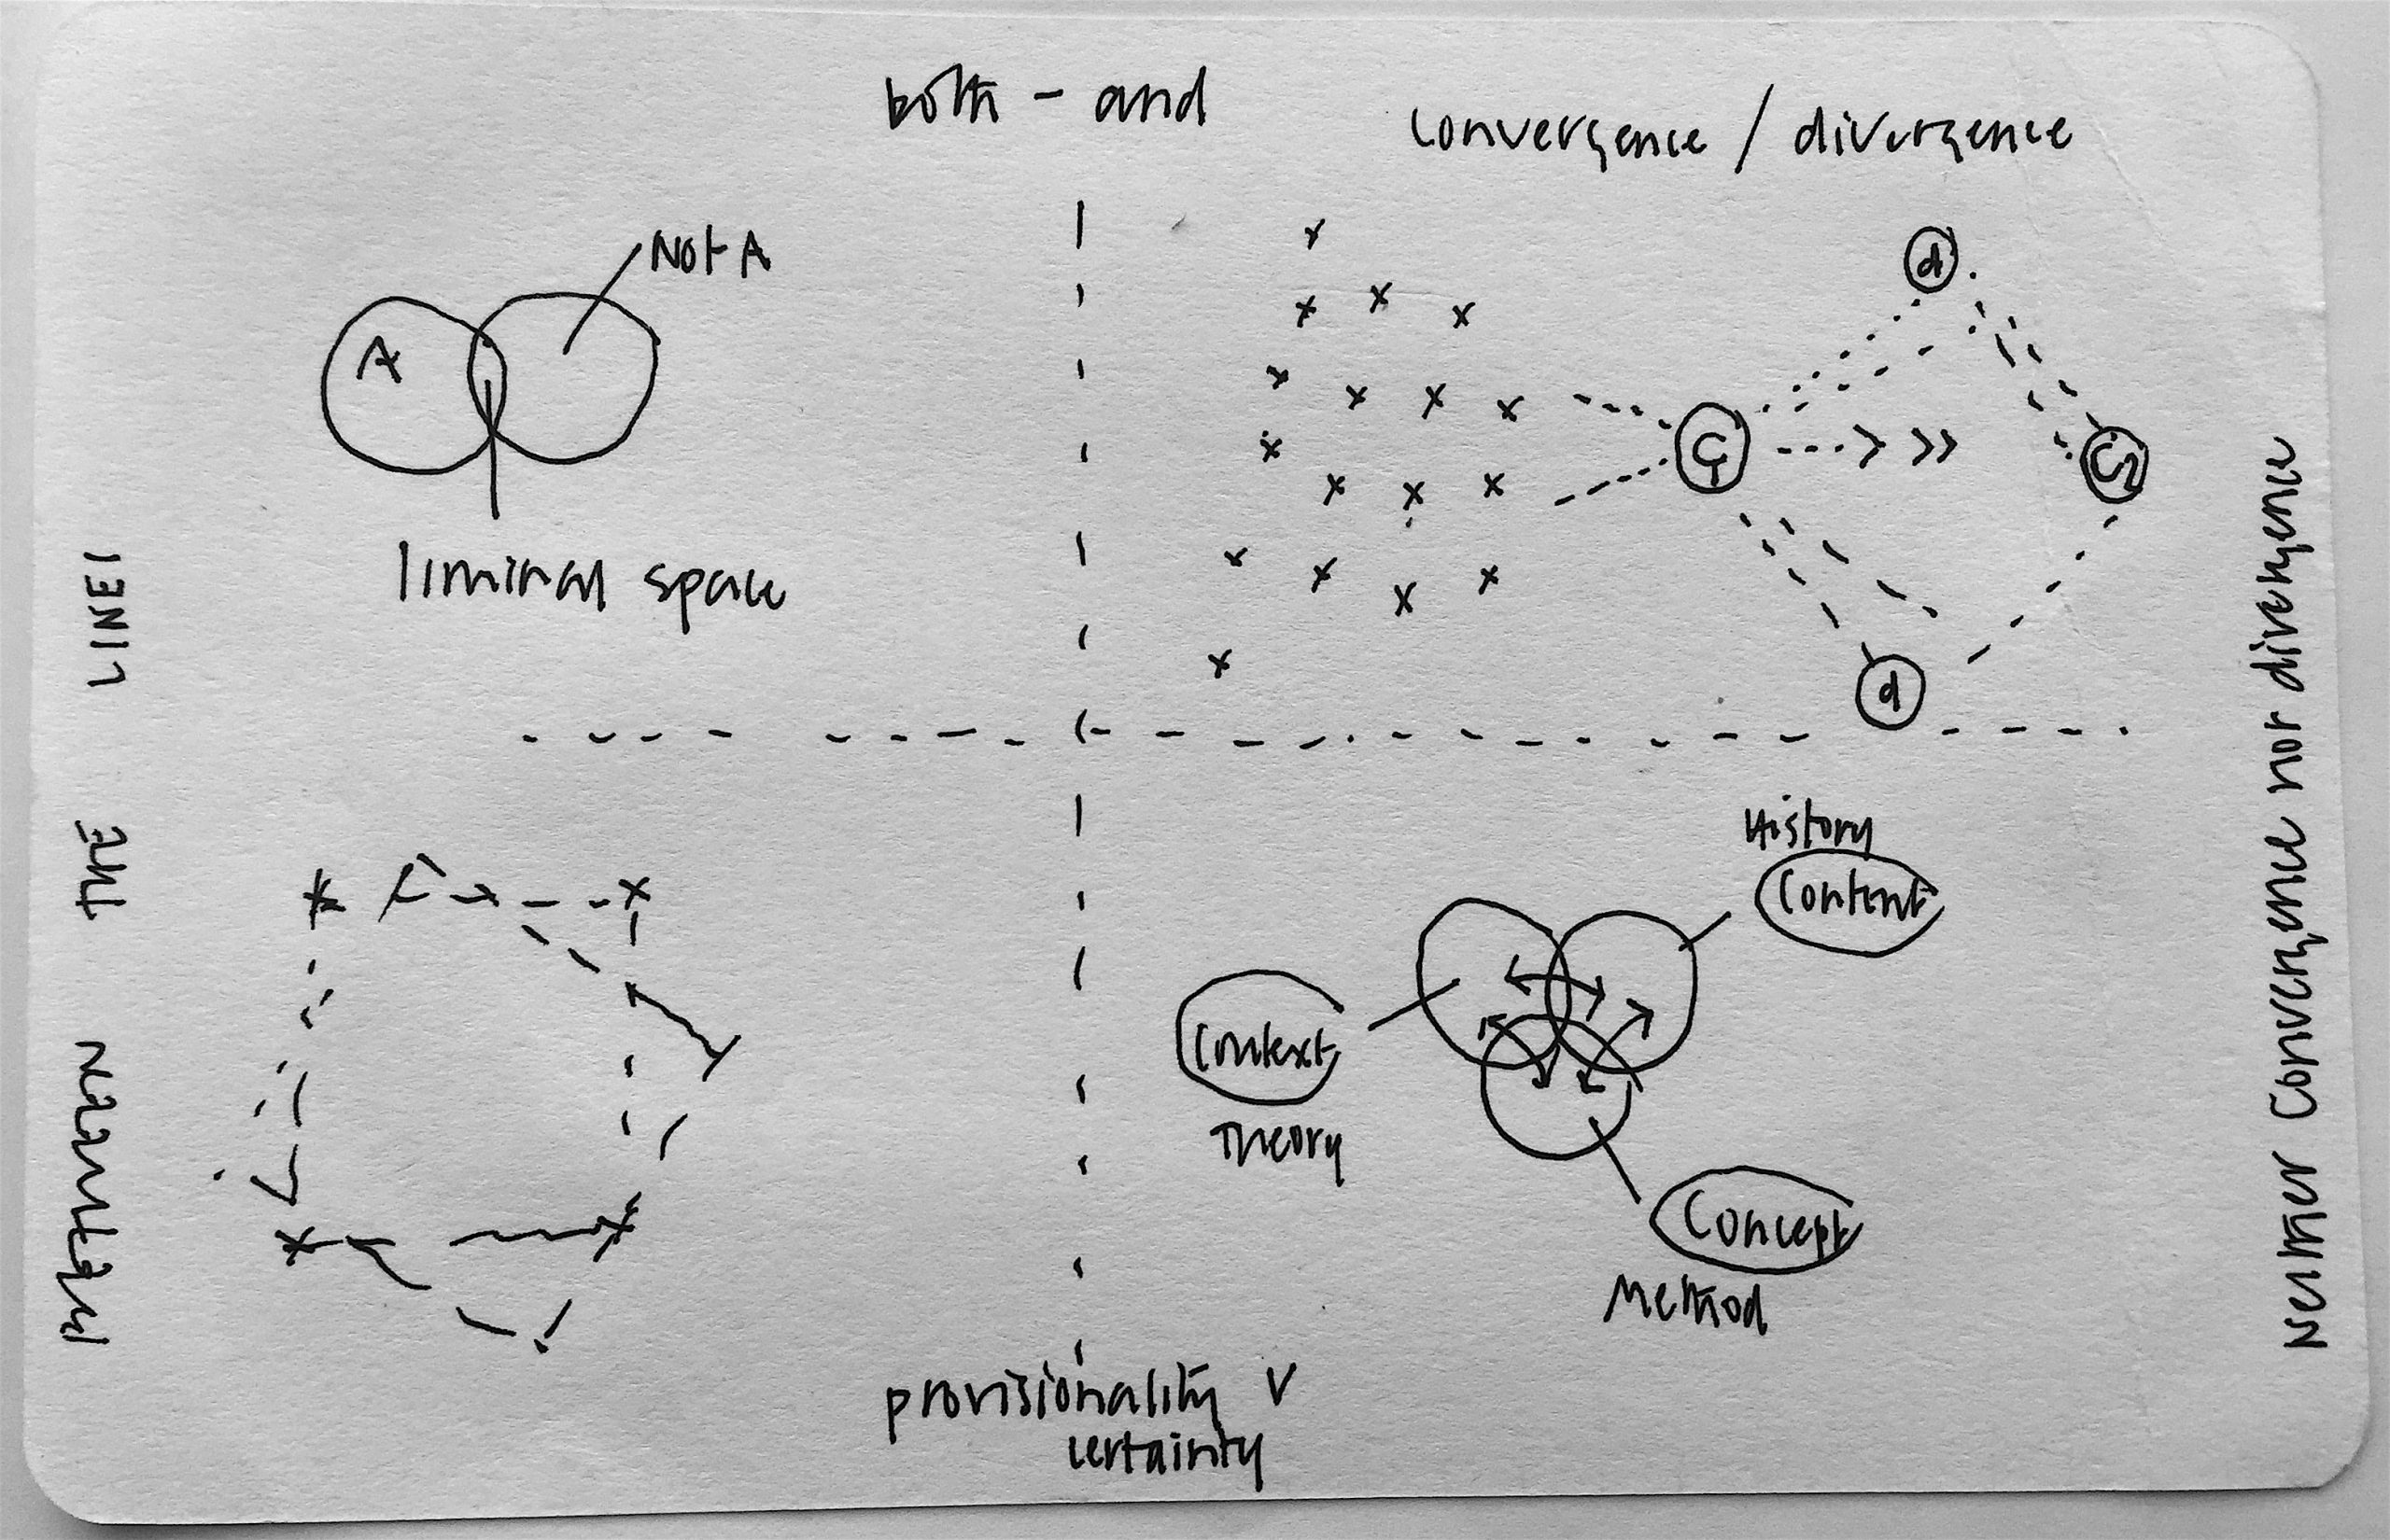 both - and
convergence / divergence
Not A
A
liminal space
d
C1
C2
d
METHWEEN THE LINE!
Neither Convergence nor divergence
History
Content
Context
Theory
Concept
Method
provisionality v
certainty